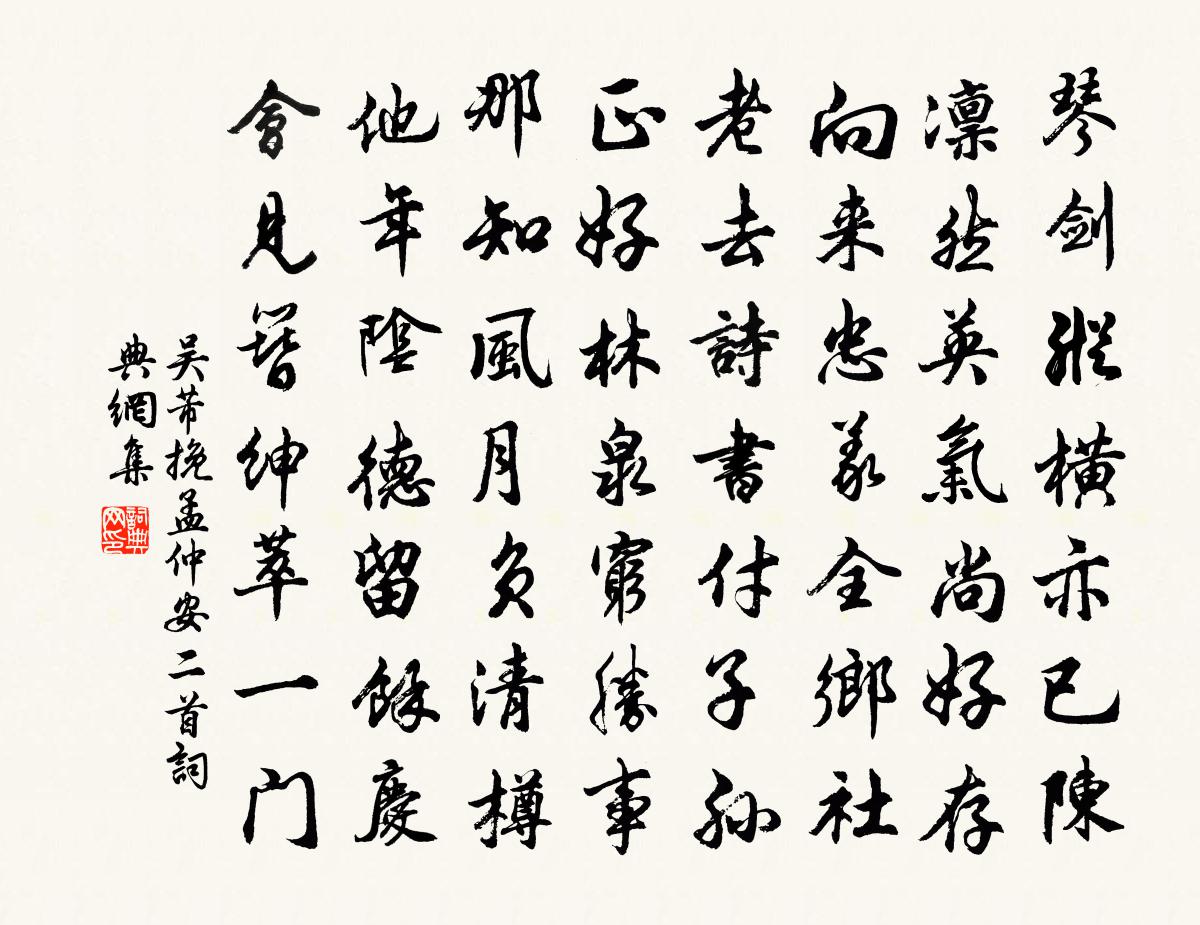 琴劍縱橫亦已陳
凛然英氣尚好存
向来忠義全鄉社
老去詩書付子孫
正好林泉窮勝事
那知風月負清樽
他年陰德留餘慶
會見簪紳萃一门
吴芾挽孟仲安二首詞
典網集
詞典网印